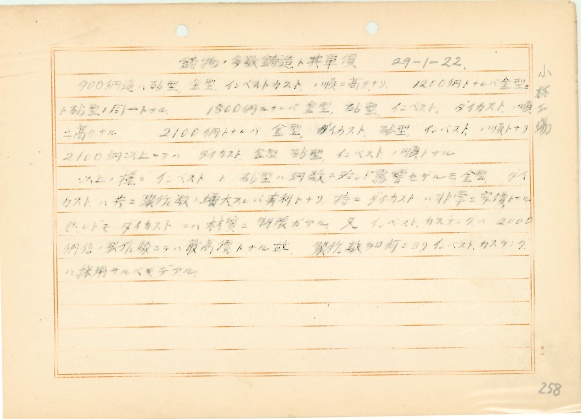 鋳物ノ多数鋳造ト其單價 29-1-22.
900個迄ハ砂型 金型 インベストカスト ノ順ニ高クナリ. 1200個トナレバ金型
ト砂型ト同一トナル. 1500個ナレバ 金型. 砂型 インベスト. ダイカスト ノ順
ニ高クナル 2100個トナレバ 金型. ダイカスト. 砂型 インベスト. ノ順トナリ
2100個以上ニテハ ダイカスト 金型 砂型 インベスト ノ順トナル
以上ノ様ニ インベスト ト 砂型ハ個数ニ殆ンド影響セザルモ金型 ダイ
カスト ハ 製作数ノ増大スレバ有利トナリ 特ニ ダイカストハ非常ニ安價トナル
ダイカスト ニハ材質ニ制限ガアル. 又 インベストカスチングハ 2000
個位ノ製作数ニテハ最高價トナル故 製作数如何ニヨリ インベストカスチング
ハ採用サルベキデアル.
小林工場
258